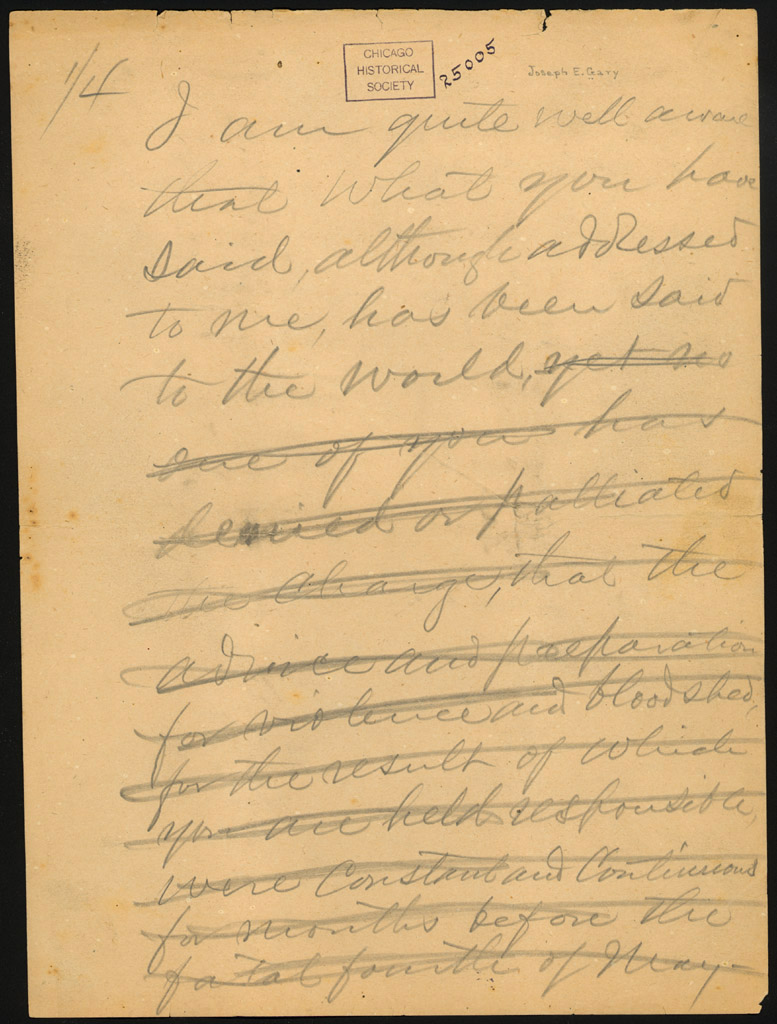 1/4
CHICAGO
HISTORICAL
SOCIETY
25005
Joseph E. Gary
I am quite well aware
that what you have
said, although addressed
to me, has been said
to the world, yet no
one of you has
denied or palliated
the charge, that the
advice and preparation
for violence and bloodshed,
for the result of which
you are held responsible,
were constant and continuous
for months before the
fatal fourth of May-